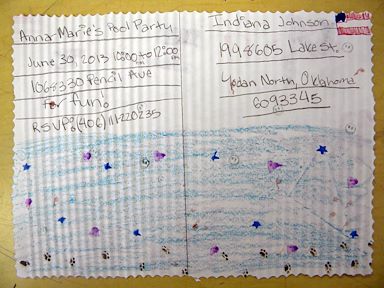 Anna Marie's Pool Party
June 30, 2013 10:00am to 12:00pm
1068330 Pencil Ave
for fun!
RSVP: (406)111-220235
Indiana Johnson
1998605 Lake St.
North, Oklahoma
6093345